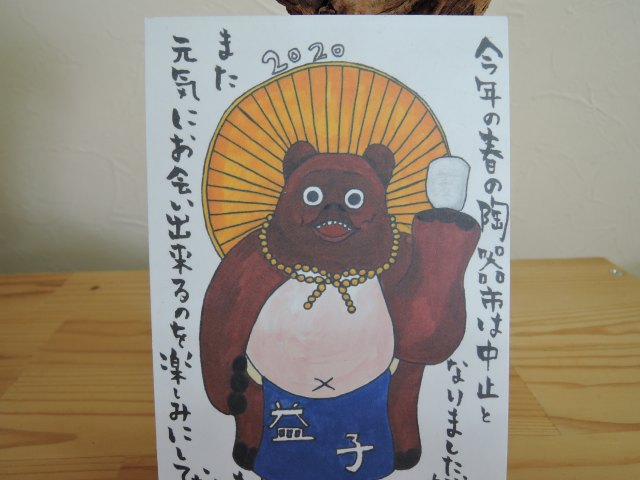 2020
今年の春の陶器市は中止と
なりました
また
元気にお会い出来るのを楽しみにして
益子